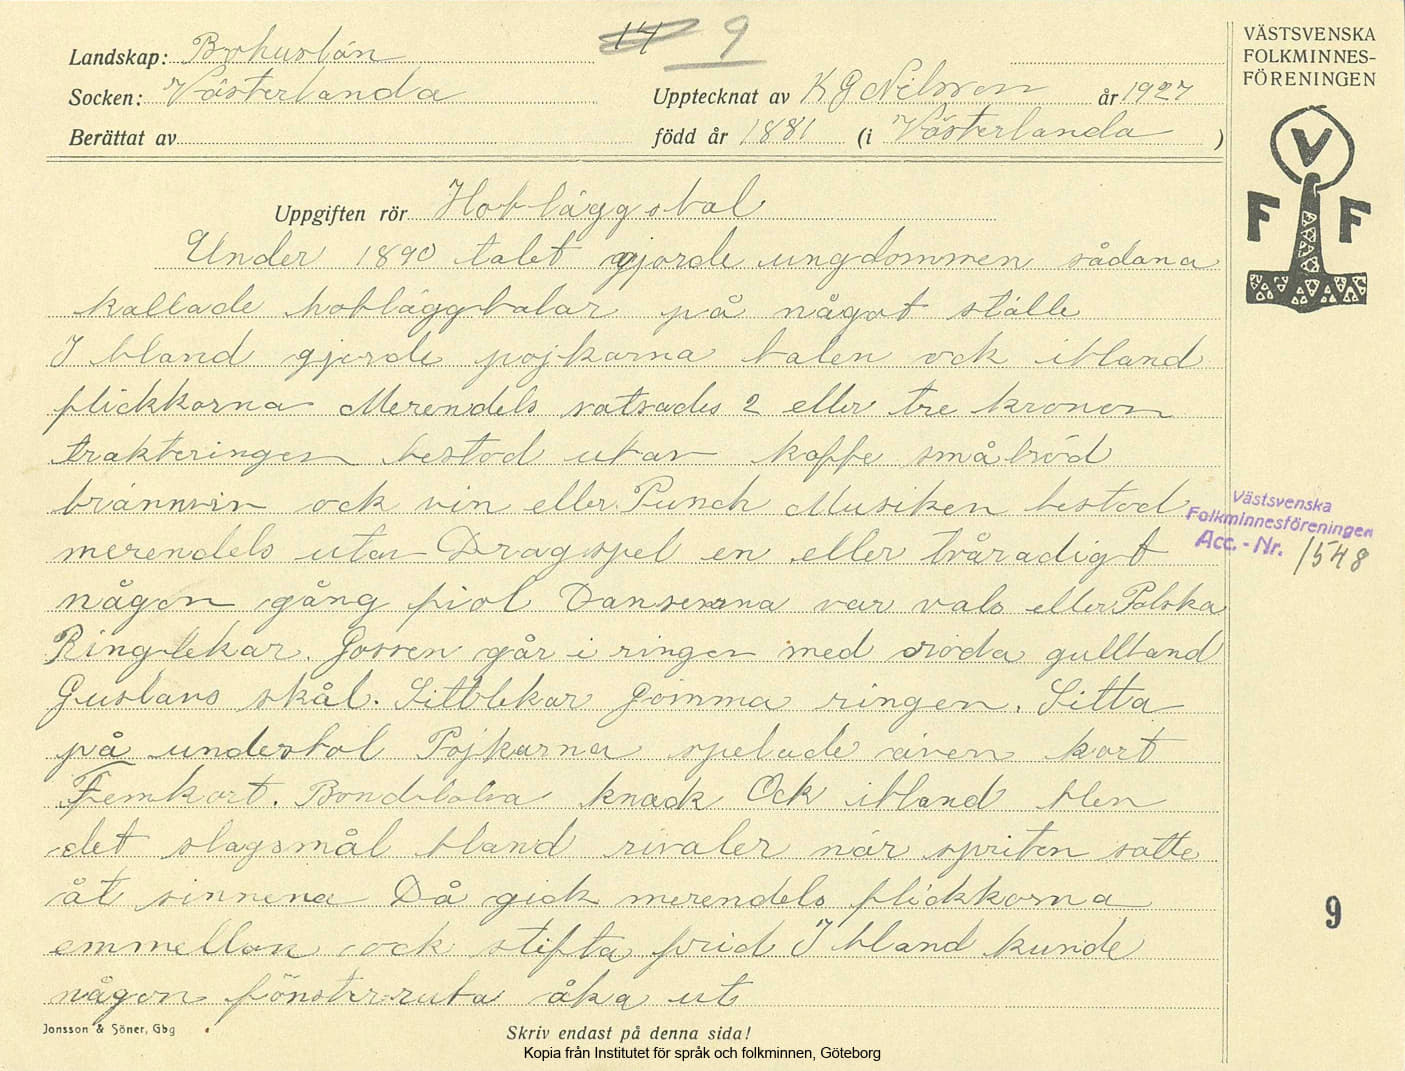 14 9
Landskap: Bohuslän
Socken: Västerlanda
Upptecknat av K G Nilsson år 1927
Berättat av
född år 1881 (i Västerlanda )
VÄSTSVENSKA
FOLKMINNES-
FÖRENINGEN
V
F F
Uppgiften rör Hopläggsbal
Under 1890 talet gjorde ungdommen sådana
kallade hopläggbalar på något ställe
I bland gjorde pojkarna balen ock ibland
flickkorna Merendels satsades 2 eller tre kronor
trakteringen bestod utav kaffe småbröd
brännvin ock vin eller Punch Musiken bestod
merendels utav Dragspel en eller tvåradigt
någon gång fiol Danserna var vals eller Polska
Ringlekar. Gossen går i ringen med röda gullband
Gustavs skål. Sittlekar Gömma ringen. Sitta
på understol Pojkarna spelade även kort
Femkort. knack Ock ibland blev
det slagsmål bland rivaler när spriten satte
åt sinnena Då gick merendels flickkorna
emmellan ock stifta frid I bland kunde
någon fönsterruta åka ut
Västsvenska
Folkminnesföreningen
Acc. - Nr. 1548
9
Jonsson & Söner, Gbg
Skriv endast på denna sida!
Kopia från Institutet för språk och folkminnen, Göteborg